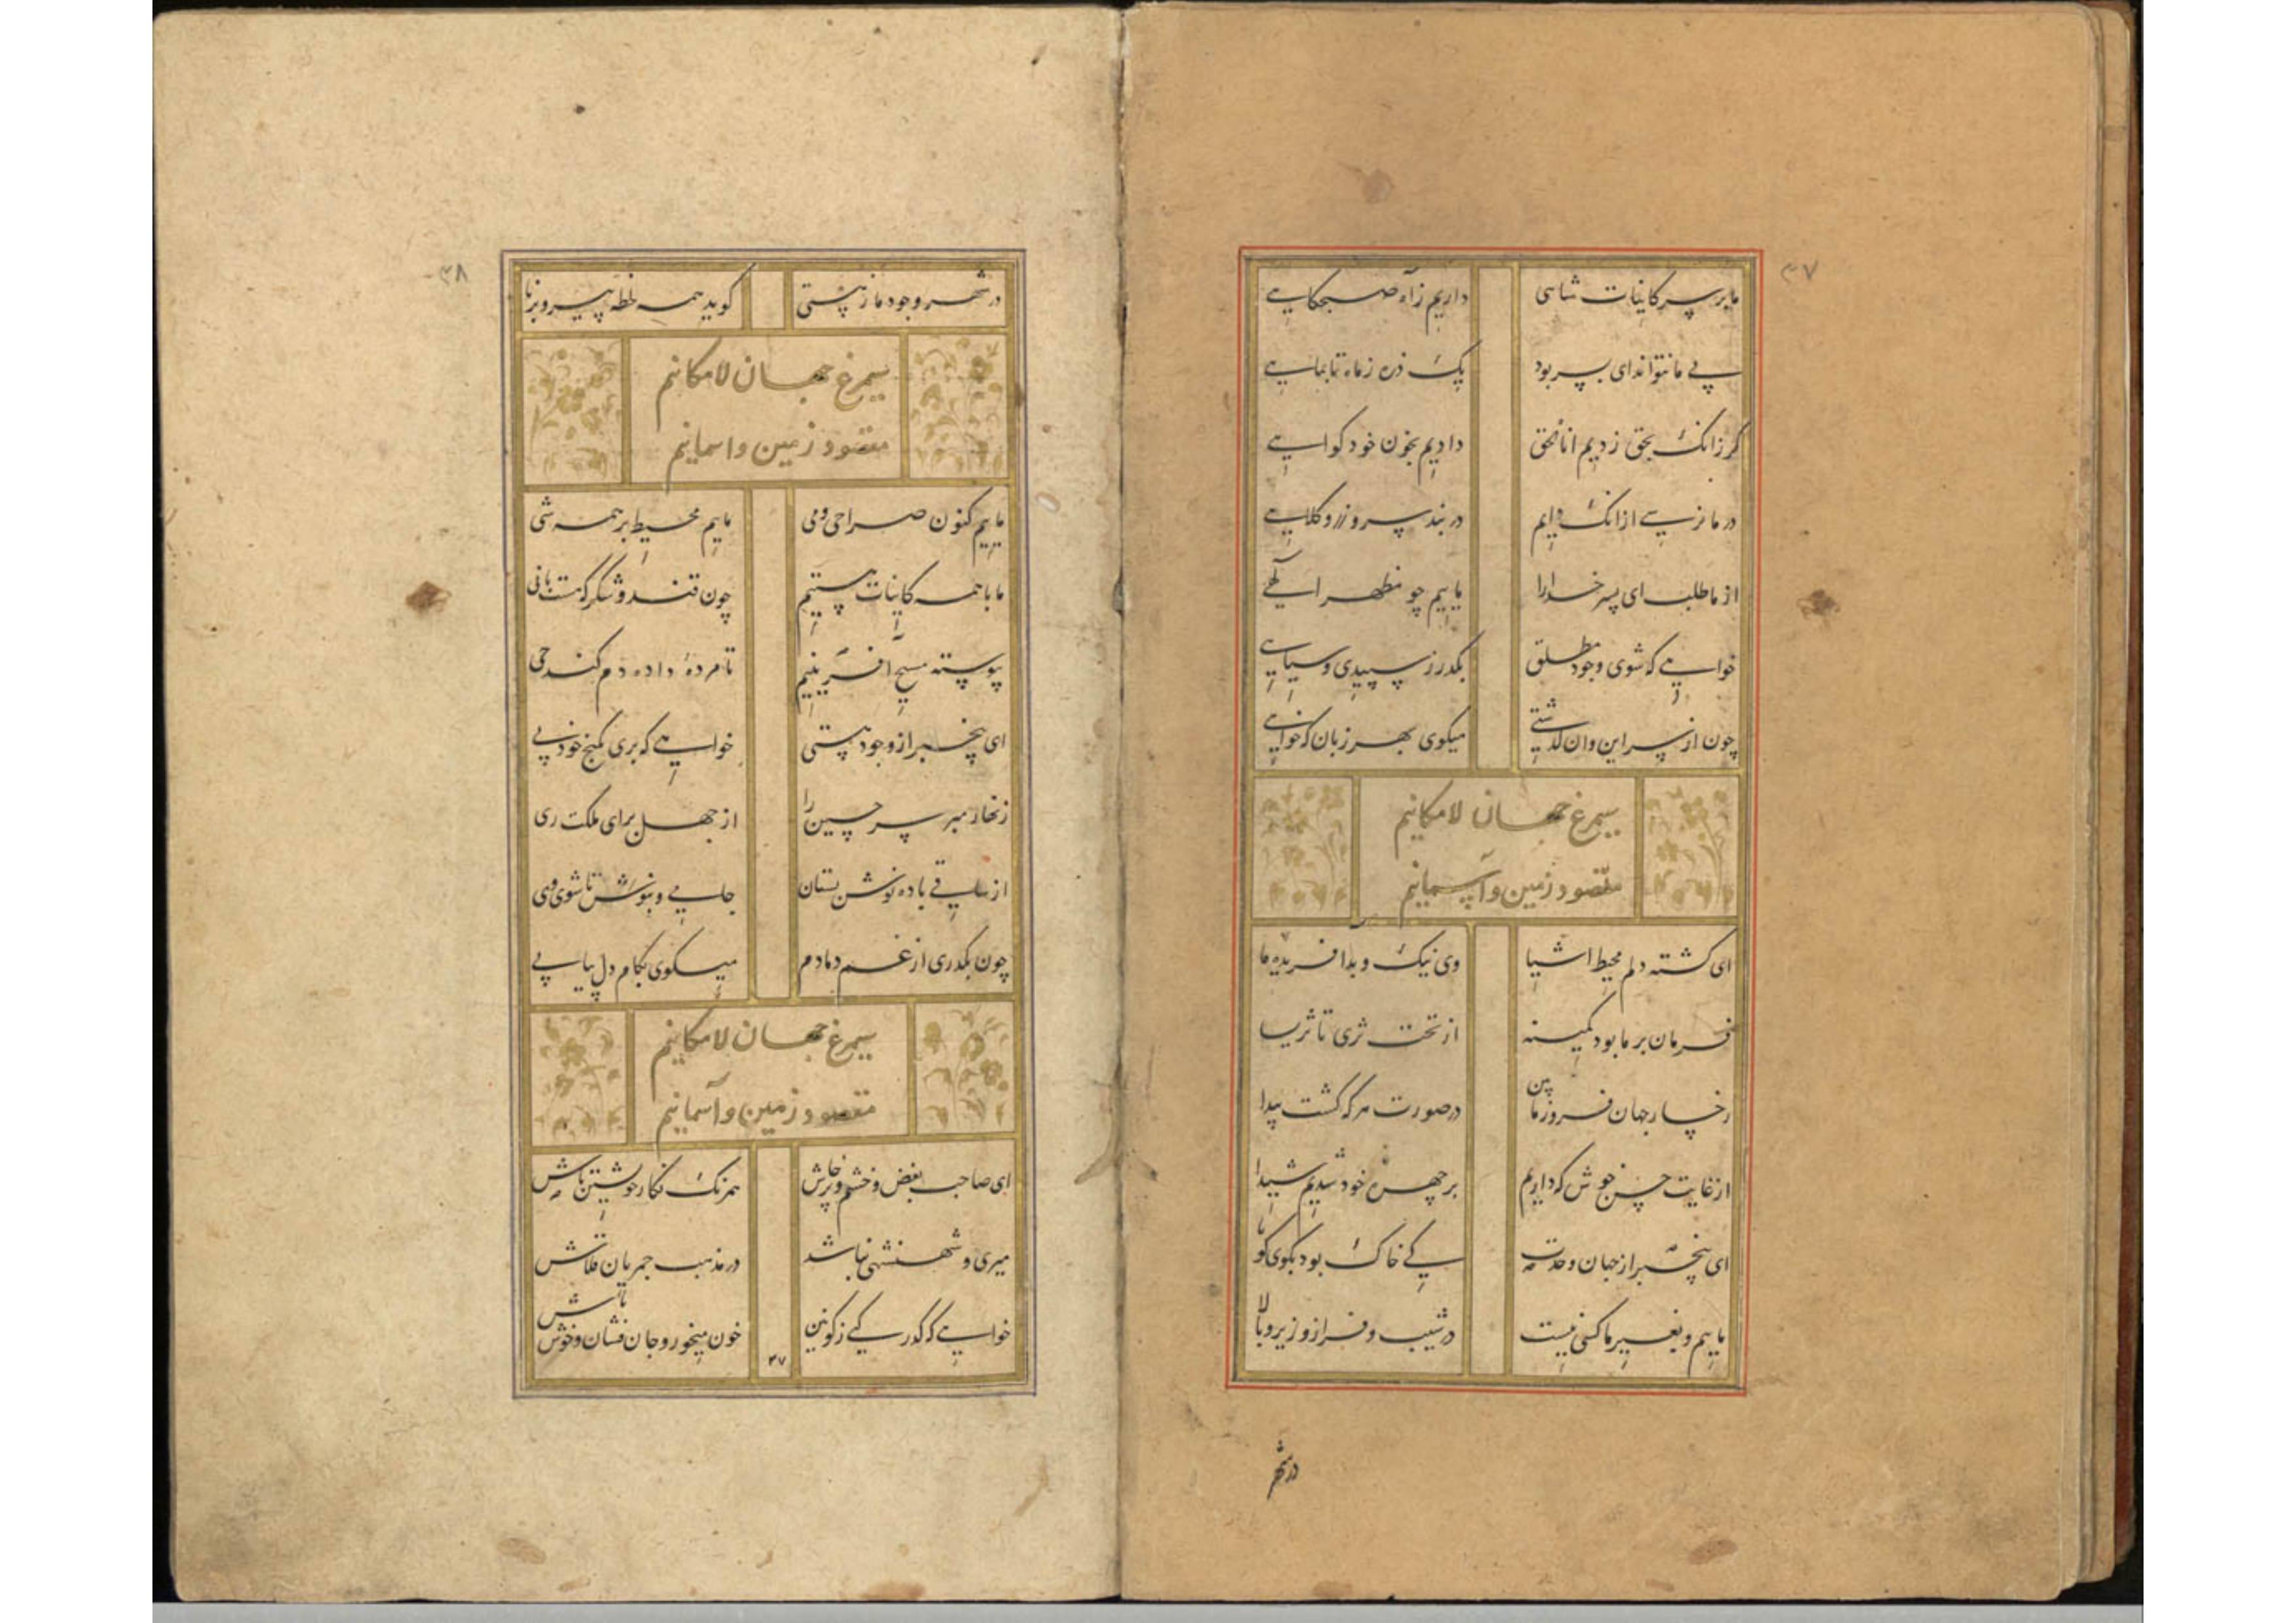 ۳۷
ما بر سر کاینات شاسی داریم زآه صبحکاهی
پی ما نتواند ای پسر بود یک ذره ز ماه تا بماهی
کر زانک بحق زدیم انا الحق دادیم بخون خود کواهی
در ما نرسی از انک دایم در بند سر و زر و کلاهی
از ما طلب ای پسر خدا را ماییم چو مظهر الهی
خواهی که شوی وجود مطلق بکذر ز سپیدی و سیاهی
چون از سر این و ان کذشتی میکوی بهر زبان که خواهی
سیمرغ جهان لامکانیم
مقصود زمین و آسمانیم
ای کشته دلم محیط اشیا وی نیک و بد آفریده ما
فرمان بر ما بود کمینه از تحت ثری تا ثریا
رخسار جهان فروز ما بین در صورت هر که کشت پیدا
از غایت حسن خوش که داریم بر چهره خود شدیم شیدا
ای بیخبر از جهان وحدت کی خاک بود بکوی کویا
ماییم و بغیر ما کسی نیست در شیب و فراز و زیر و بالا
در شهر
۳۸
در شهر وجود ما ز هستی کوید همه لحظه پیر و برنا
سیمرغ جهان لامکانیم
مقصود زمین و اسمانیم
ماییم کنون صراحی و می ماییم محیط بر همه شی
ما با همه کاینات هستیم چون قند و شکر که هست با نی
پیوسته مسیح آفرینیم تا مرده داده دم کند حی
ای بیخبر از وجود هستی خواهی که بری بکنج خود پی
زنهار مبر سر حسین را از جهل برای ملکت ری
از ساقی باده نوش بستان جامی و بنوش تا شوی وی
چون بکذری از غم دمادم میکوی بکام دل پیاپی
سیمرغ جهان لامکانیم
مقصود زمین و آسمانیم
ای صاحب بغض و خشم و پرخاش همرنک نکار خویشتن باش
میری و شهنشهی نباشد در مذهب جمریان قلاش
خواهی که کذر کنی ز کونین خون میخور و جان فشان و خوش باش
۳۷